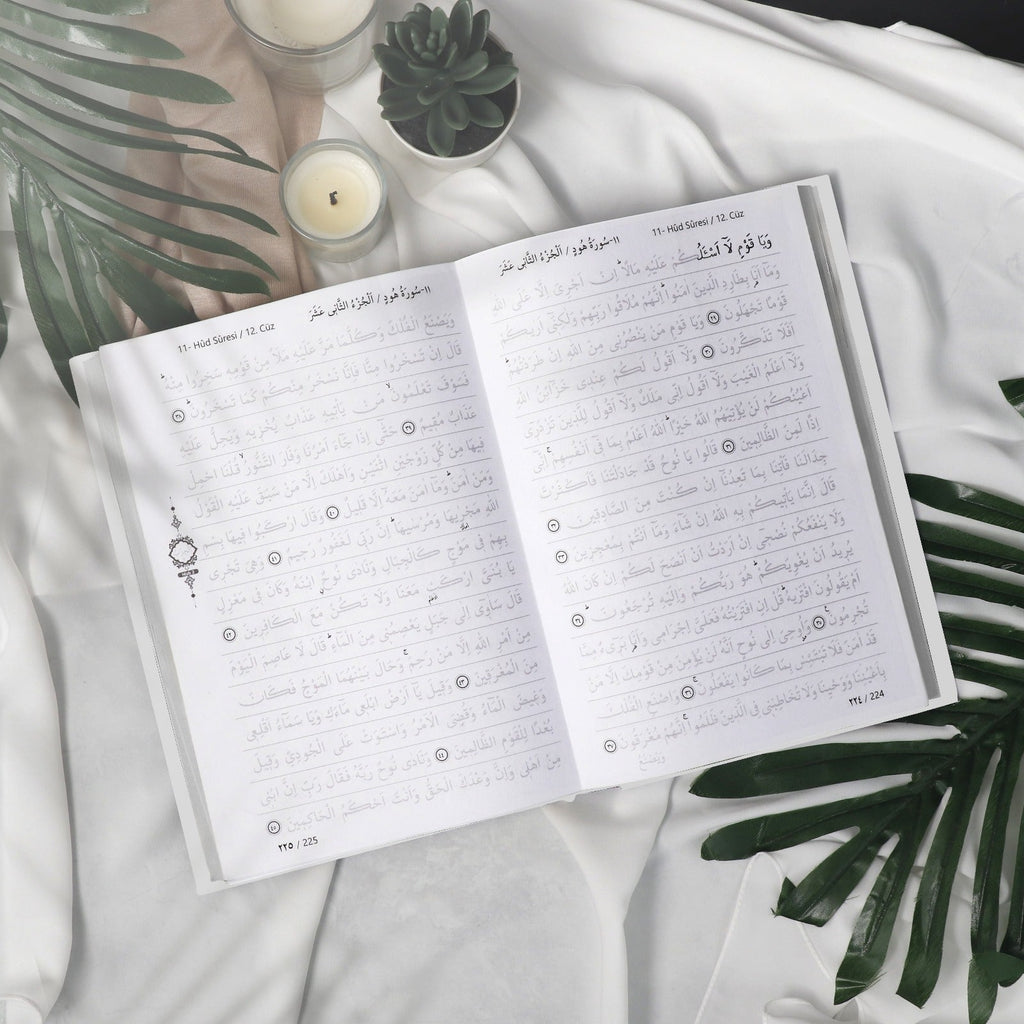 ١١-سُورَةُ هُودٍ / اَلْجُزْءُ الثَّانِى عَشَرَ
11- Hûd Sûresi / 12. Cüz
وَيَا قَوْمِ لَٓا اَسْـَٔلُكُمْ عَلَيْهِ مَالًاۜ اِنْ اَجْرِىَ اِلَّا عَلَى اللّٰهِ
وَمَٓا اَنَا۬ بِطَارِدِ الَّذ۪ينَ اٰمَنُواۜ اِنَّهُمْ مُلَاقُوا رَبِّهِمْ وَلٰكِنّ۪ٓى اَرٰيكُمْ
قَوْمًا تَجْهَلُونَ ٢٩ وَيَا قَوْمِ مَنْ يَنْصُرُن۪ى مِنَ اللّٰهِ اِنْ طَرَدْتُهُمْۜ
اَفَلَا تَذَكَّرُونَ ٣٠ وَلَٓا اَقُولُ لَكُمْ عِنْد۪ى خَزَٓائِنُ اللّٰهِ
وَلَٓا اَعْلَمُ الْغَيْبَ وَلَٓا اَقُولُ اِنّ۪ى مَلَكٌ وَلَٓا اَقُولُ لِلَّذ۪ينَ تَزْدَر۪ٓى
اَعْيُنُكُمْ لَنْ يُؤْتِيَهُمُ اللّٰهُ خَيْرًاۜ اَللّٰهُ اَعْلَمُ بِمَا ف۪ٓى اَنْفُسِهِمْۚ اِنّ۪ٓى
اِذًا لَمِنَ الظَّالِم۪ينَ ٣١ قَالُوا يَا نُوحُ قَدْ جَادَلْتَنَا فَاَكْثَرْتَ
جِدَالَنَا فَأْتِنَا بِمَا تَعِدُنَٓا اِنْ كُنْتَ مِنَ الصَّادِق۪ينَ ٣٢
قَالَ اِنَّمَا يَأْت۪يكُمْ بِهِ اللّٰهُ اِنْ شَٓاءَ وَمَٓا اَنْتُمْ بِمُعْجِز۪ينَ ٣٣
وَلَا يَنْفَعُكُمْ نُصْح۪ٓى اِنْ اَرَدْتُ اَنْ اَنْصَحَ لَكُمْ اِنْ كَانَ اللّٰهُ
يُر۪يدُ اَنْ يُغْوِيَكُمْۜ هُوَ رَبُّكُمْ وَاِلَيْهِ تُرْجَعُونَۜ ٣٤
اَمْ يَقُولُونَ افْتَرٰيهُۜ قُلْ اِنِ افْتَرَيْتُهُ فَعَلَىَّ اِجْرَام۪ى وَاَنَا۬ بَر۪ٓىءٌ مِمَّا
تُجْرِمُونَ۟ ٣٥ وَاُو۫حِىَ اِلٰى نُوحٍ اَنَّهُ لَنْ يُؤْمِنَ مِنْ قَوْمِكَ اِلَّا مَنْ
قَدْ اٰمَنَ فَلَا تَبْتَئِسْ بِمَا كَانُوا يَفْعَلُونَۚ ٣٦ وَاصْنَعِ الْفُلْكَ
بِاَعْيُنِنَا وَوَحْيِنَا وَلَا تُخَاطِبْن۪ى فِى الَّذ۪ينَ ظَلَمُواۚ اِنَّهُمْ مُغْرَقُونَ ٣٧
وَيَصْنَعُ
٢٢٤ / 224
١١-سُورَةُ هُودٍ / اَلْجُزْءُ الثَّانِى عَشَرَ
11- Hûd Sûresi / 12. Cüz
وَيَصْنَعُ الْفُلْكَ وَكُلَّمَا مَرَّ عَلَيْهِ مَلَاٌ مِنْ قَوْمِه۪ سَخِرُوا مِنْهُۜ
قَالَ اِنْ تَسْخَرُوا مِنَّا فَاِنَّا نَسْخَرُ مِنْكُمْ كَمَا تَسْخَرُونَۜ ٣٨
فَسَوْفَ تَعْلَمُونَۙ مَنْ يَأْت۪يهِ عَذَابٌ يُخْز۪يهِ وَيَحِلُّ عَلَيْهِ
عَذَابٌ مُق۪يمٌ ٣٩ حَتّٰٓى اِذَا جَٓاءَ اَمْرُنَا وَفَارَ التَّنُّورُۙ قُلْنَا احْمِلْ
ف۪يهَا مِنْ كُلٍّ زَوْجَيْنِ اثْنَيْنِ وَاَهْلَكَ اِلَّا مَنْ سَبَقَ عَلَيْهِ الْقَوْلُ
وَمَنْ اٰمَنَۜ وَمَٓا اٰمَنَ مَعَهُٓ اِلَّا قَل۪يلٌ ٤٠ وَقَالَ ارْكَبُوا ف۪يهَا بِسْمِ
اللّٰهِ مَجْرٰ۪يهَا وَمُرْسٰيهَاۜ اِنَّ رَبّ۪ى لَغَفُورٌ رَح۪يمٌ ٤١ وَهِىَ تَجْر۪ى
بِهِمْ ف۪ى مَوْجٍ كَالْجِبَالِ وَنَادٰى نُوحٌ ابْنَهُ وَكَانَ ف۪ى مَعْزِلٍ
يَا بُنَىَّ ارْكَبْ مَعَنَا وَلَا تَكُنْ مَعَ الْكَافِر۪ينَ ٤٢
قَالَ سَاٰو۪ٓى اِلٰى جَبَلٍ يَعْصِمُن۪ى مِنَ الْمَٓاءِۜ قَالَ لَا عَاصِمَ الْيَوْمَ
مِنْ اَمْرِ اللّٰهِ اِلَّا مَنْ رَحِمَۚ وَحَالَ بَيْنَهُمَا الْمَوْجُ فَكَانَ
مِنَ الْمُغْرَق۪ينَ ٤٣ وَق۪يلَ يَٓا اَرْضُ ابْلَع۪ى مَٓاءَكِ وَيَا سَمَٓاءُ اَقْلِع۪ى
وَغ۪يضَ الْمَٓاءُ وَقُضِىَ الْاَمْرُ وَاسْتَوَتْ عَلَى الْجُودِىِّ وَق۪يلَ
بُعْدًا لِلْقَوْمِ الظَّالِم۪ينَ ٤٤ وَنَادٰى نُوحٌ رَبَّهُ فَقَالَ رَبِّ اِنَّ ابْن۪ى
مِنْ اَهْل۪ى وَاِنَّ وَعْدَكَ الْحَقُّ وَاَنْتَ اَحْكَمُ الْحَاكِم۪ينَ ٤٥
٢٢٥ / 225